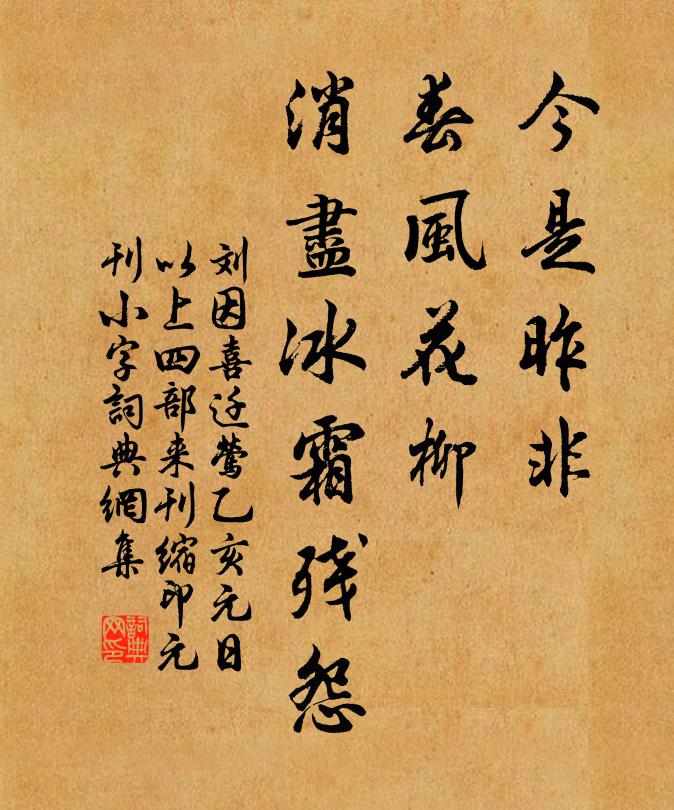 今是昨非
春風花柳
消盡冰霜残怨
刘因喜迁莺乙亥元日
以上四部来刊縮印元
刊小字詞典網集
詞典网印